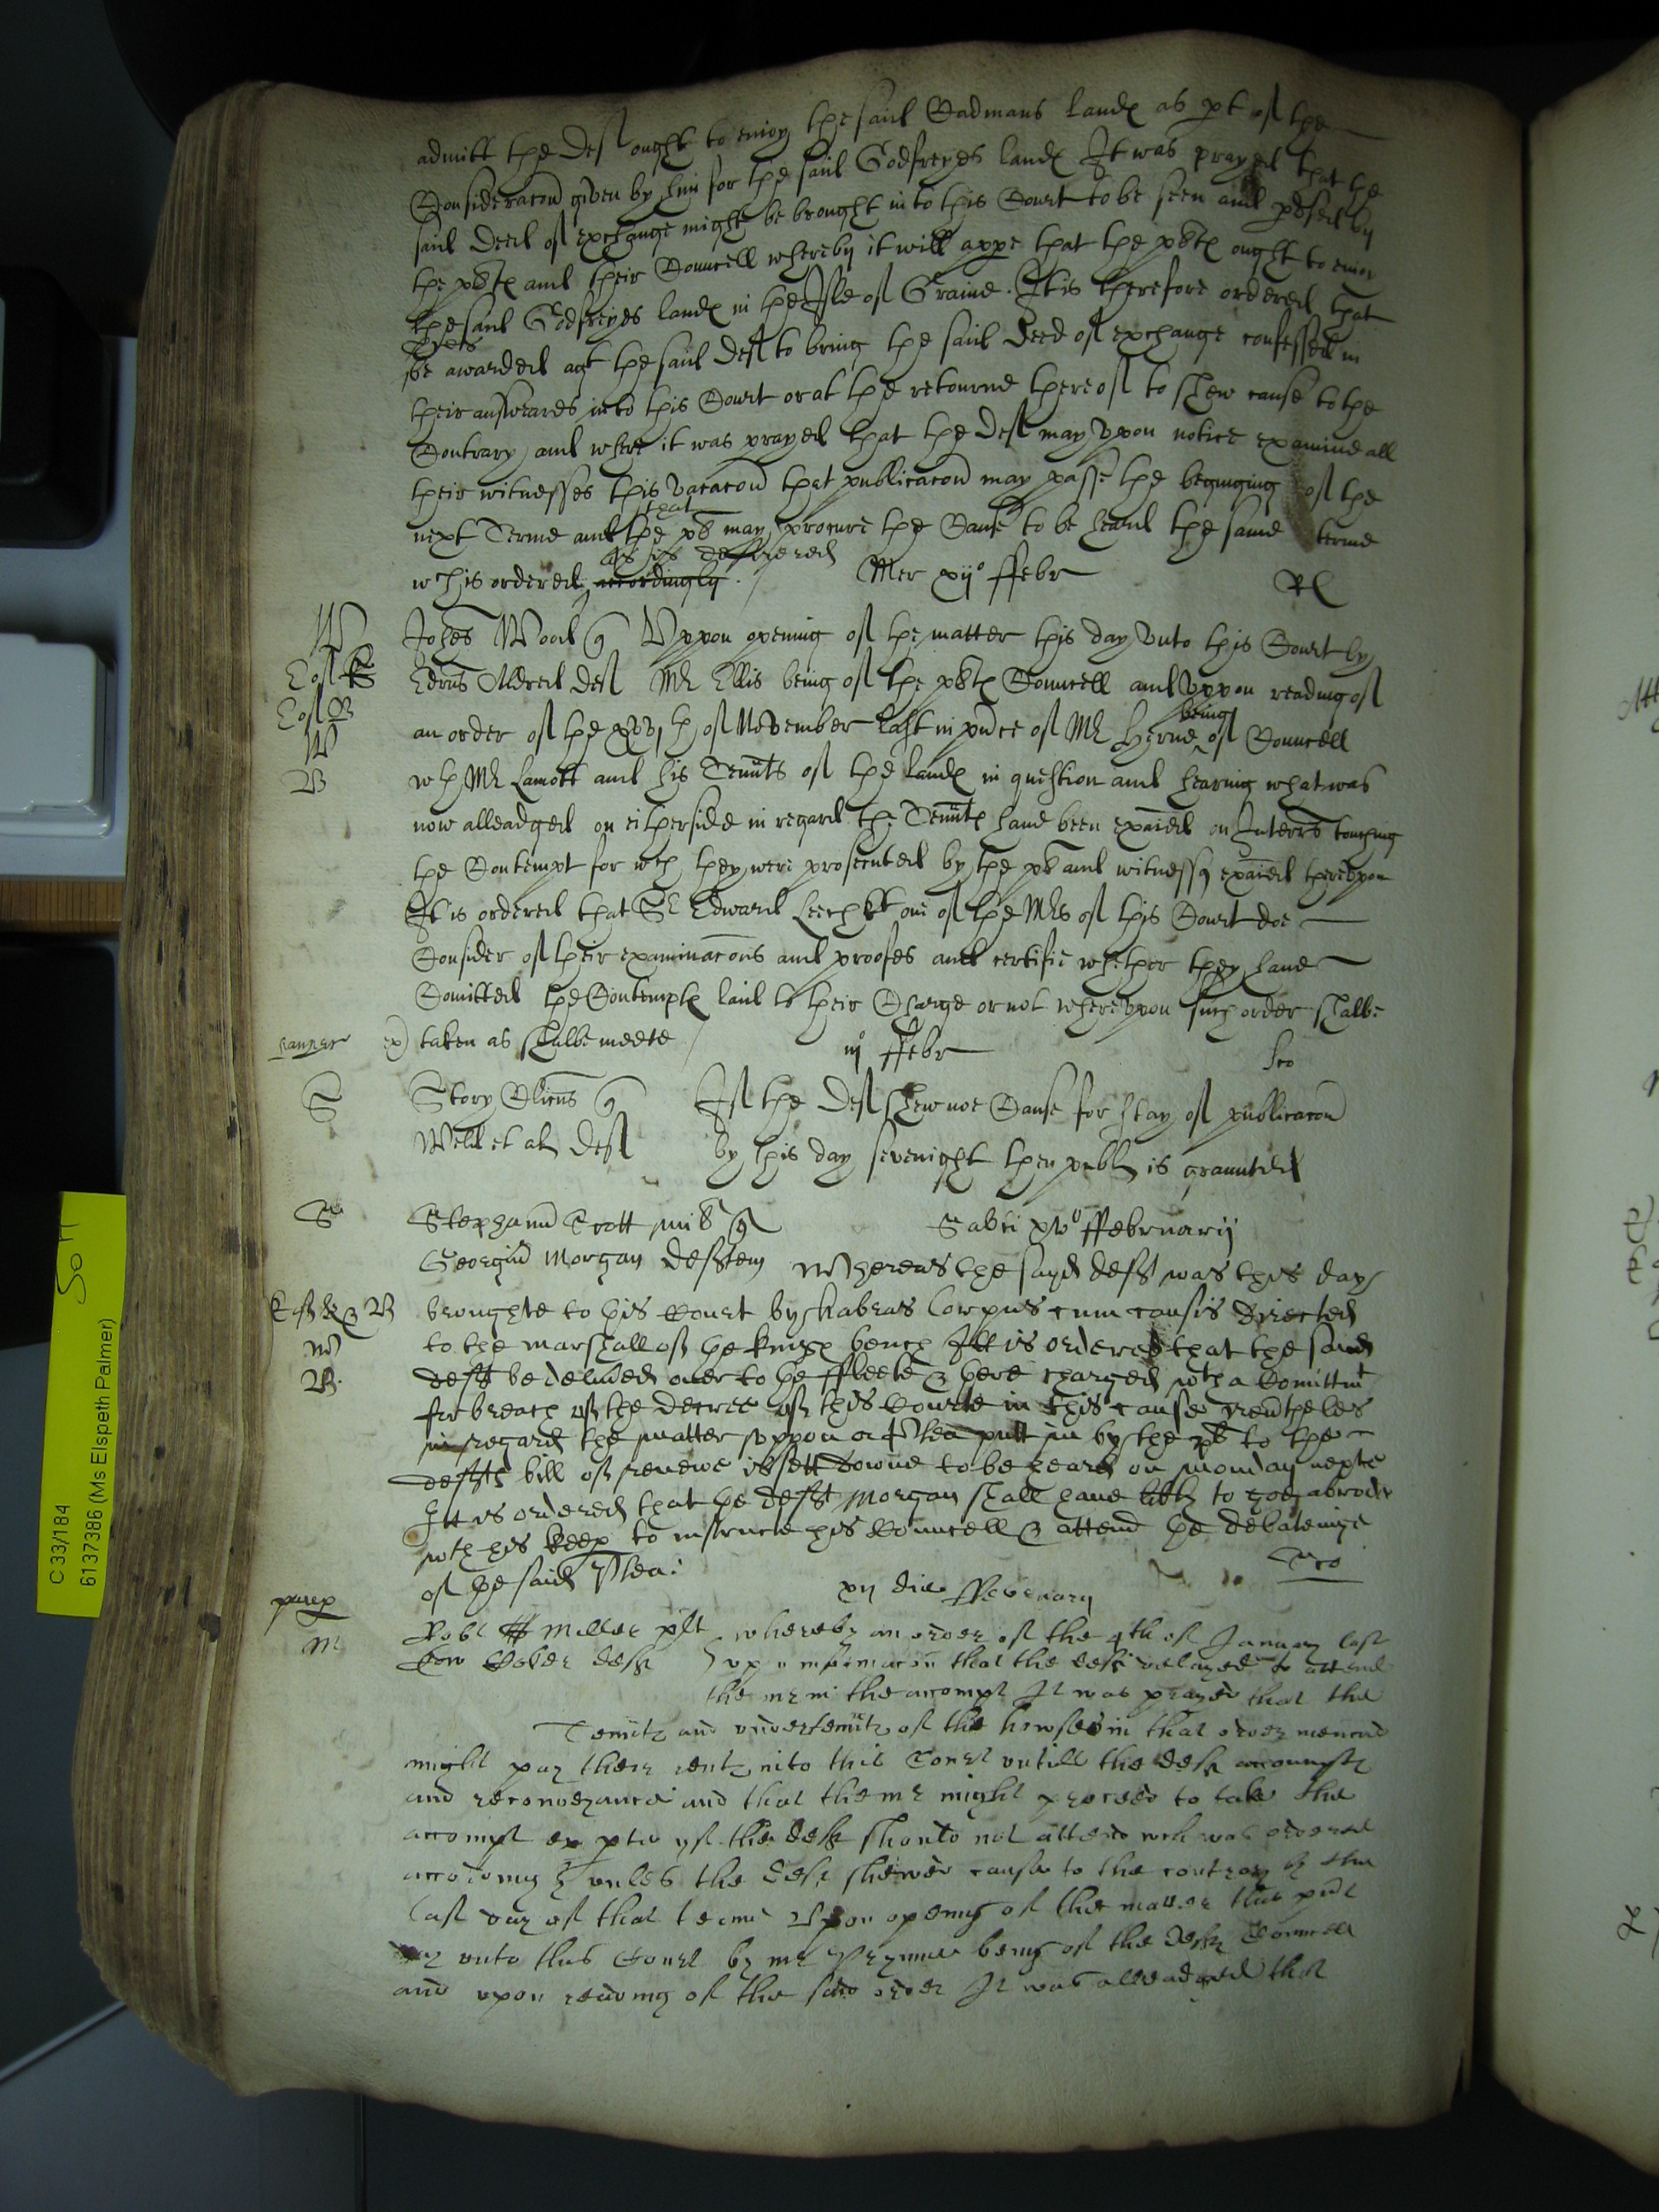 admitt the def ought to enioy the said Cadmans land as pt of the
Consideracon given by him for the said Godfreyes land It was prayed that the
said deed of exchange might be brought in to this Court to be seen and pused by
the plt and their Councell whereby it will appe that the plt ought to enioy
the said Godfreyes land in the Isle of Graine. It is therefore ordered that
be awarded agt the said def to bring the said deed of exchange confessed in
their answeares into this Court or at the retourne thereof to shew cause to the
Contrary and where it was prayed that the def may upon notice examine all
their witnesses this vacacon that publicacon may passe the beginging of the
that
next Terme and the pl may procure the Cause to be heard the same terme
as is desired
wch is ordered accordingly.
Mer xij° ffebr
Rl
W
Johes Wood q Uppon opening of the matter this day unto this Court by
E of K
Edrus Aldred def Mr Ellis being of the plt Councell and uppon reading of
E of B
being
an order of the xxvjth of November last in pnce of Mr Herne of Councell
W
B
wth Mr Lamott and his Tennts of the land in question and hearing what was
now alleadged on either side in regard the Tennts haue been exaied on Interrs touching
the Contempt for wch they were prosecuted by the pl and witnesses exaied thereupon
It is ordered that Sr Edward Leech kt one of the Mrs of this Court doe
Consider of their examinacons and proofes and certifie whether they haue
Comitted the Contempts laid to their Charge or not whereupon such order shalbe
ex taken as shalbe meete
iij° ffebr
Sco
S
Story Clicus q If the def shew noe Cause for stay of publicacon
Webb et al def by this day sevenight then publ is graunted
Stephanus Scott mil q
Sabti xv° ffebruarij
Georgius Morgan defftem Whereas the sayd defft was this day
E of K & B
broughte to this Court by habeas Corpus cum causis directed
W
to the marshall of the kings bench Itt is ordered that the said
B.
defft be deliued ouer to the ffleete & there charged wth a Comittmt
for breach of the decree of this Courte in this cause neutheles
in regard the matter uppon a Plea putt in by the pl to the
deffts bill of reuewe is sett downe to be heard on monday nexte
Itt is ordered that the defft Morgan shall haue libty to goe abrode
wth his keep to instructe his Councell & attend the debateinge
of the said Plea:
xij die ffebruary
M
Robt Miller plt whereby an order of the 4th of January last
def upon informacon that the deft delayed to attend
the mr in the accompt It was prayed that the
Tennts and undertennts of the howses in that order mencned
might pay there rents into this Court untill the deft accounts
and reconveyance and that the mr might proceed to take the
accompt ex pte yf the deft should not attend wch was ordered
accordingly unles the deft shewed cause to the contrary by the
last day of that terme Upon opening of the matter this pnt
day unto this Court by mr Prynne being of the defts Councell
and upon reading of the said order It was alleadged that
C 33/184
6137386 (Ms Elspeth Palmer)